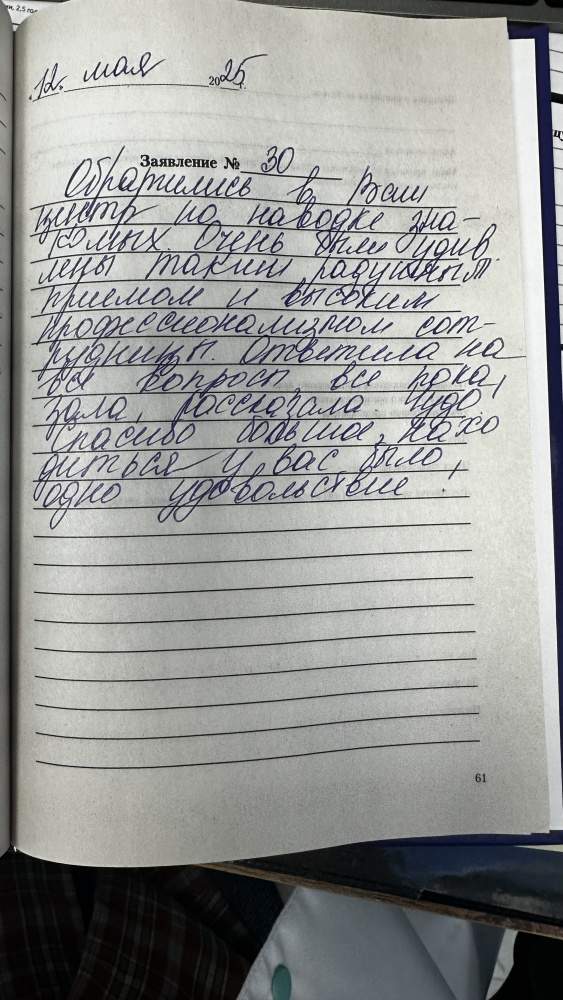 12. мая 2025
Заявление № 30
Обратились в Ваш
центр по наводке зна-
комых. Очень были удив
лены таким радушным
приемом и высоким
профессионализмом сот-
рудницы. Ответила на
все вопросы, все пока,
зала, рассказала. Чудо!
Спасибо большое, нахо
диться у вас было,
одно удовольствие!
61